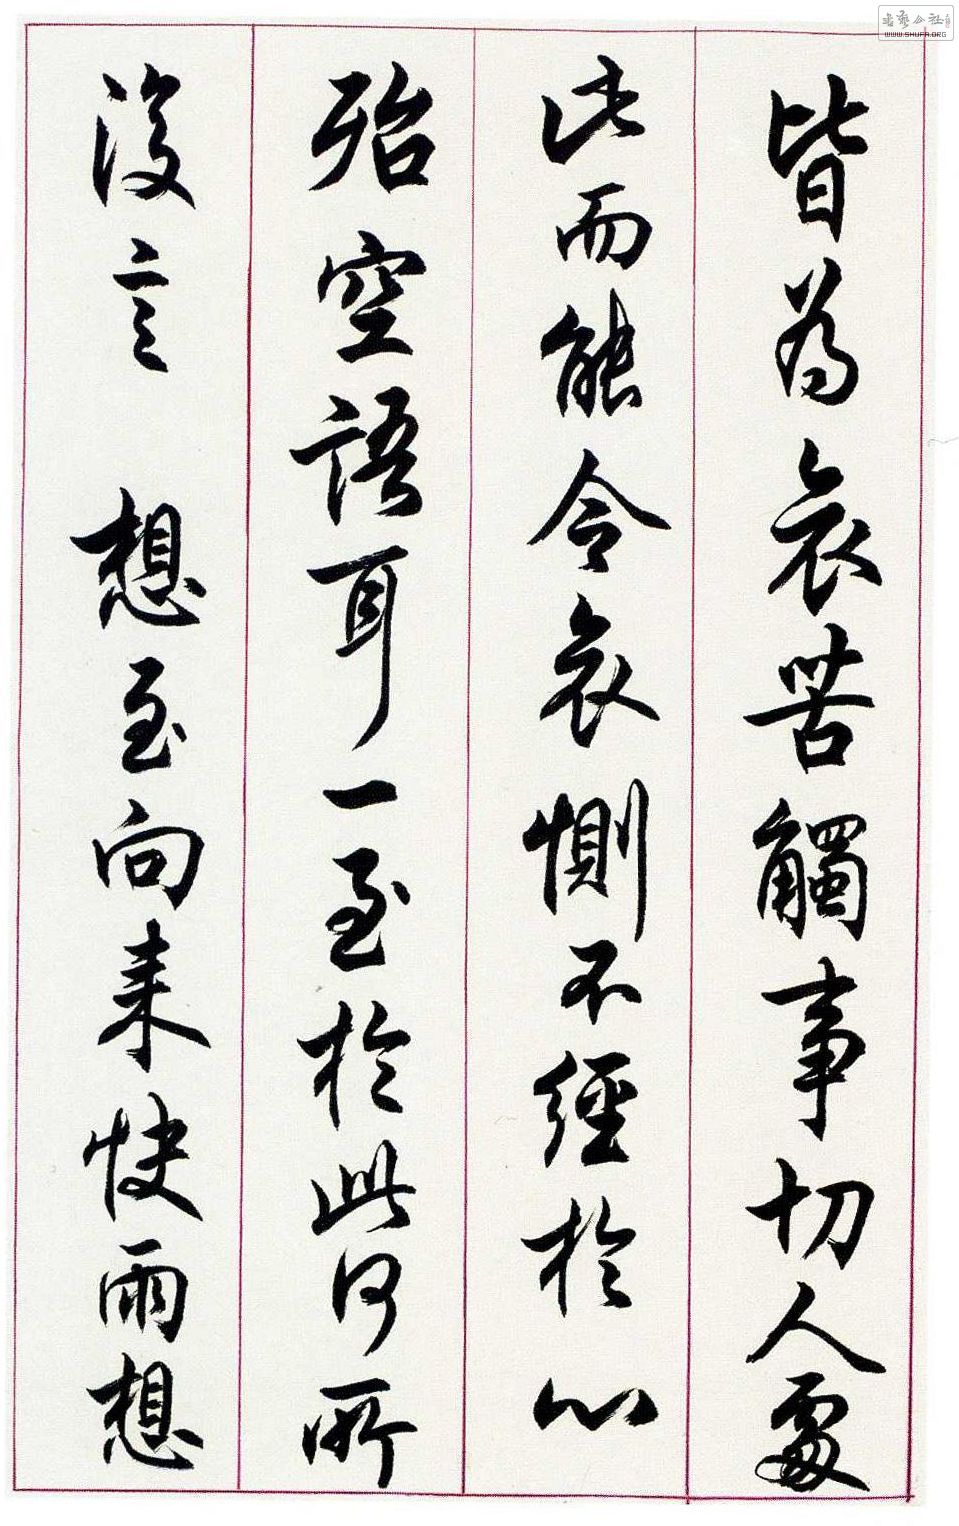 皆為哀苦觸事切人處
此而能令哀惻不經於心
殆空語耳一至於此何所
復言 想至向來快雨想
WWW.SHUFA.ORG